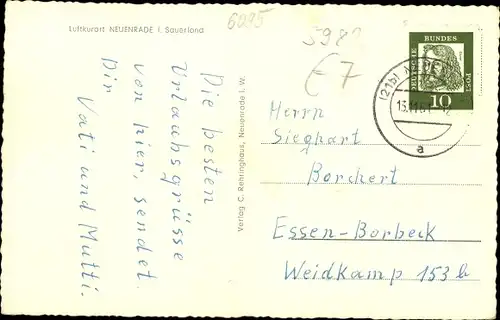 Luftkurort NEUENRADE i. Sauerland
6095
5982
€ 7
DEUTSCHE BUNDES POST
10
(21b)
a
Die besten
Urlaubsgrüsse
von hier, sendet
Dir
Vati und Mutti.
Verlag C. Rehringhaus, Neuenrade i. W.
Herrn
Sieghart
Borchert
Essen-Borbeck
Weidkamp 153 b